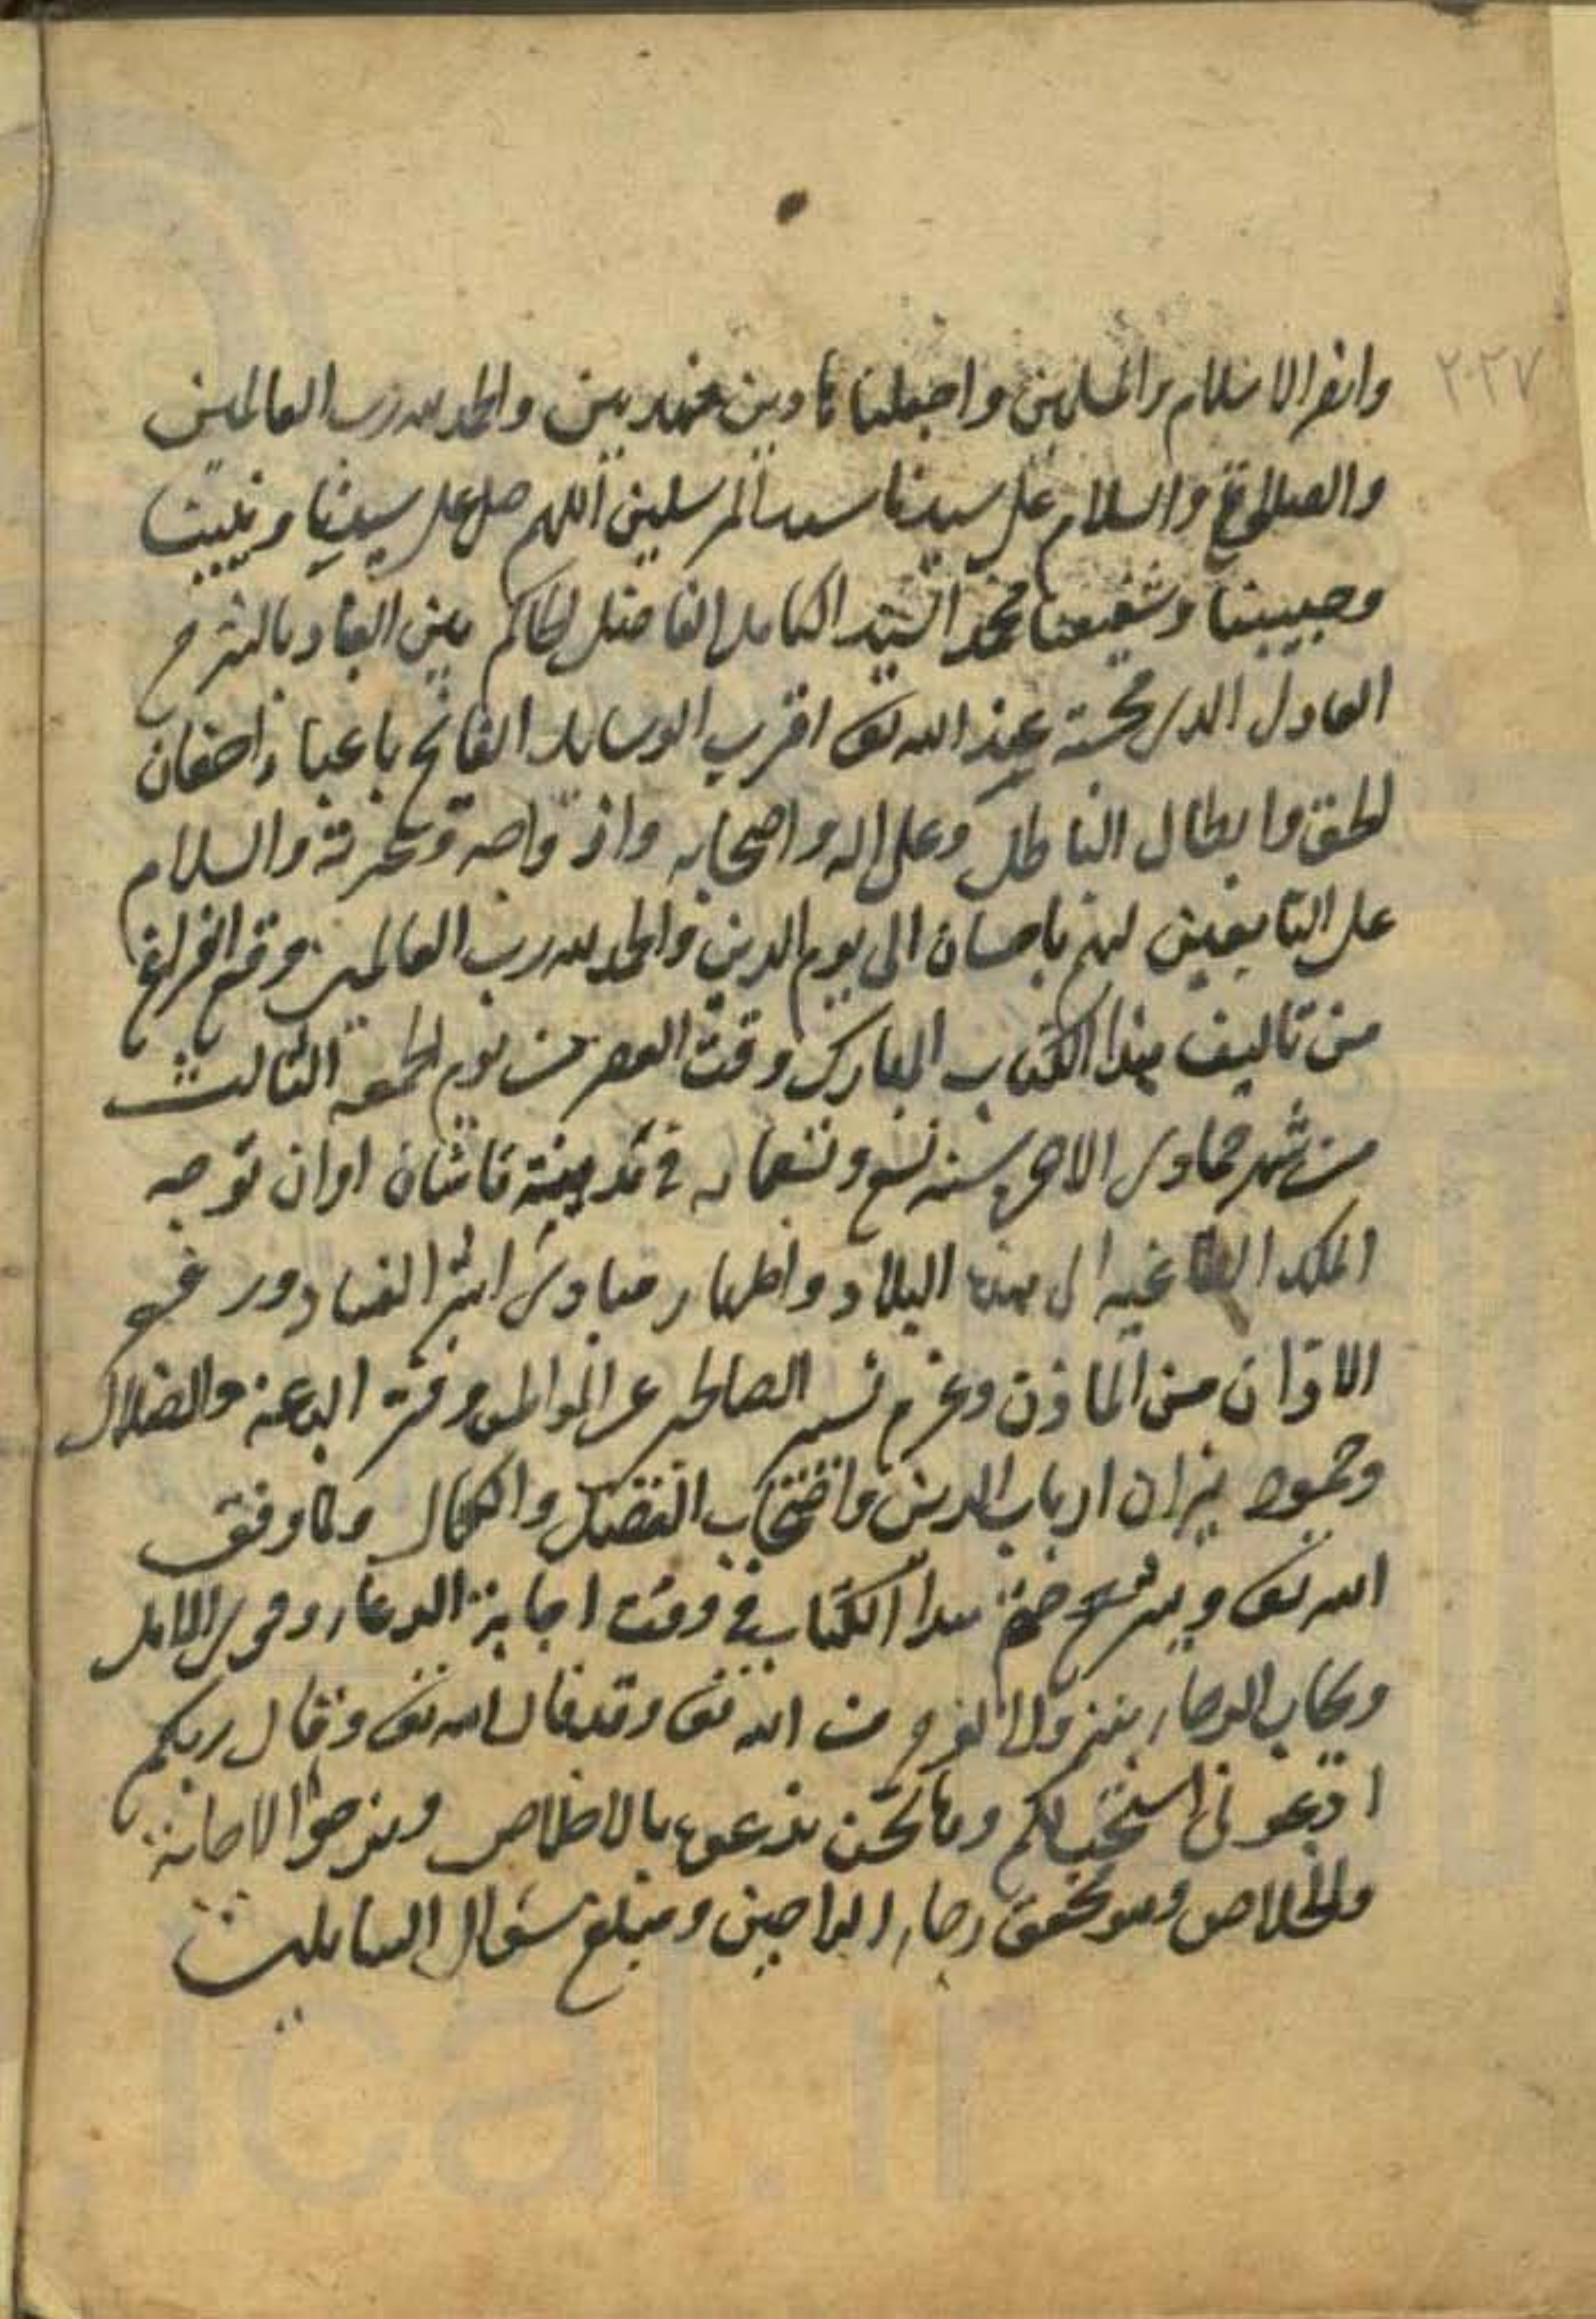 وانصر الاسلام والمسلمين واجعلنا هادين مهديين والحمد لله رب العالمين
والصلوة والسلام على سيدنا سيد المرسلين اللهم صل على سيدنا ونبينا
وحبيبنا وشفيعنا محمد السيد الكامل الفاضل الحاكم بين العباد بالشرع
العادل الذى محبته عند الله تعالى اقرب الوسايل القائم باعباء احقاق
الحق وابطال الباطل وعلى اله واصحابه وازواجه وعترته والسلام
على التابعين لهم باحسان الى يوم الدين والحمد لله رب العالمين وقع الفراغ
من تاليف هذا الكتاب المبارك وقت العصر من يوم الجمعه الثالث
من شهر جمادى الاخرى سنه تسع وتسعمايه فى مدينة قاشان اوان توجه
الملك الطاغيه الى هذه البلاد واظهار مبادى اثر الفساد ور
الاوان من وعزم الصالحين عن المواطن وفشو البدعه والضلال
وخمود نيران ارباب الدين واصحاب الفضل والكمال وكما وفق
الله تعالى ويسر ختم هذا الكتاب فى وقت اجابة الدعاء وقوى الامل
الرجاء بنزول الفرج من الله تعالى وقد قال الله تعالى وقال ربكم
ادعونى استجب لكم وها نحن ندعوه بالاخلاص ونرجو الاجابة
والخلاص وهو محقق رجاء الراجين ومبلغ سؤال السايلين
٢٠٣٧